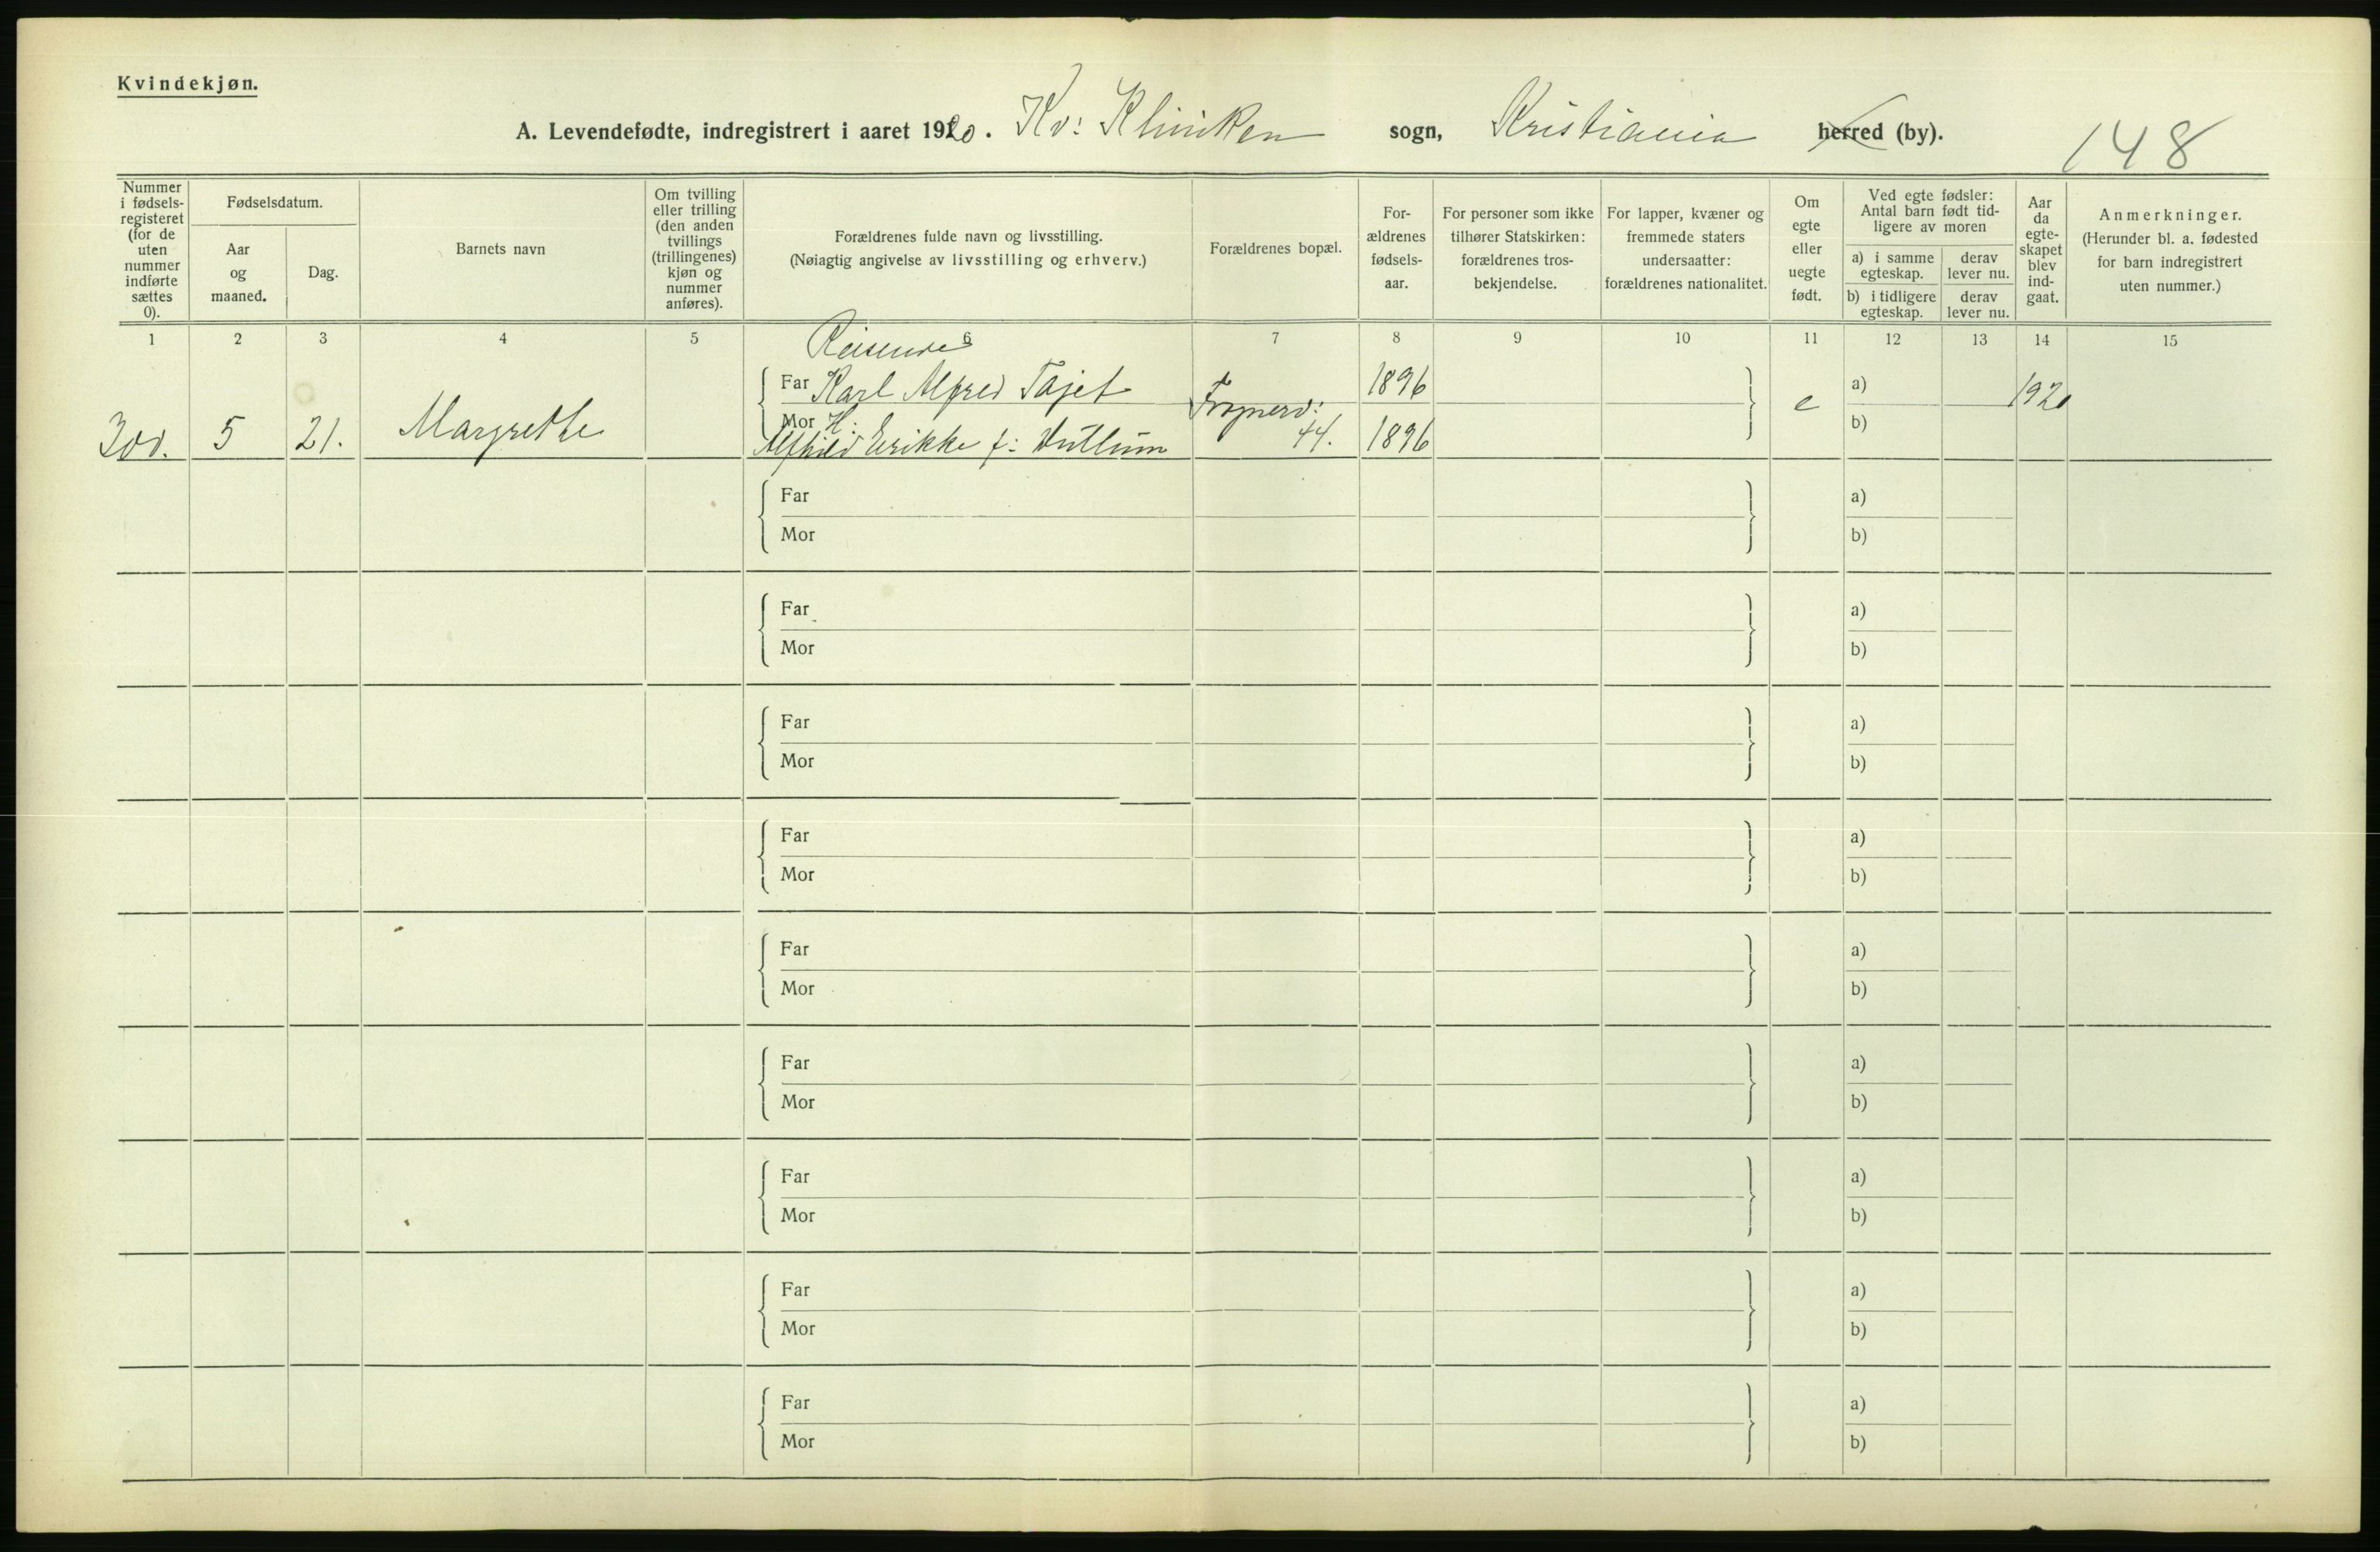 Kvindekjøn.
A. Levendefødte, indregistrert i aaret 1920. Kv: Kliniken sogn, Kristiania herred (by).
148
Nummer i fødsels-registeret (for de uten nummer indførte sættes 0).
Fødselsdatum.
Aar og maaned.
Dag.
Barnets navn
Om tvilling eller trilling (den anden tvillings (trillingenes) kjøn og nummer anføres).
Forældrenes fulde navn og livsstilling.
(Nøiagtig angivelse av livsstilling og erhverv.)
Forældrenes bopæl.
For-ældrenes fødsels-aar.
For personer som ikke tilhører Statskirken: forældrenes tros-bekjendelse.
For lapper, kvæner og fremmede staters undersaatter: forældrenes nationalitet.
Om egte eller uegte født.
Ved egte fødsler: Antal barn født tid-ligere av moren
a) i samme egteskap.
derav lever nu.
b) i tidligere egteskap.
derav lever nu.
Aar da egte-skapet blev ind-gaat.
Anmerkninger.
(Herunder bl. a. fødested for barn indregistrert uten nummer.)
1 2 3 4 5 6 7 8 9 10 11 12 13 14 15
Reisende
Far Karl Alfred Tajet 1896 a) 1920
300. 5 21. Margrethe Mor H: Frognerv: 44. e b)
Alfhild Erikke f: Hullum 1896
Far a)
Mor b)
Far a)
Mor b)
Far a)
Mor b)
Far a)
Mor b)
Far a)
Mor b)
Far a)
Mor b)
Far a)
Mor b)
Far a)
Mor b)
Far a)
Mor b)